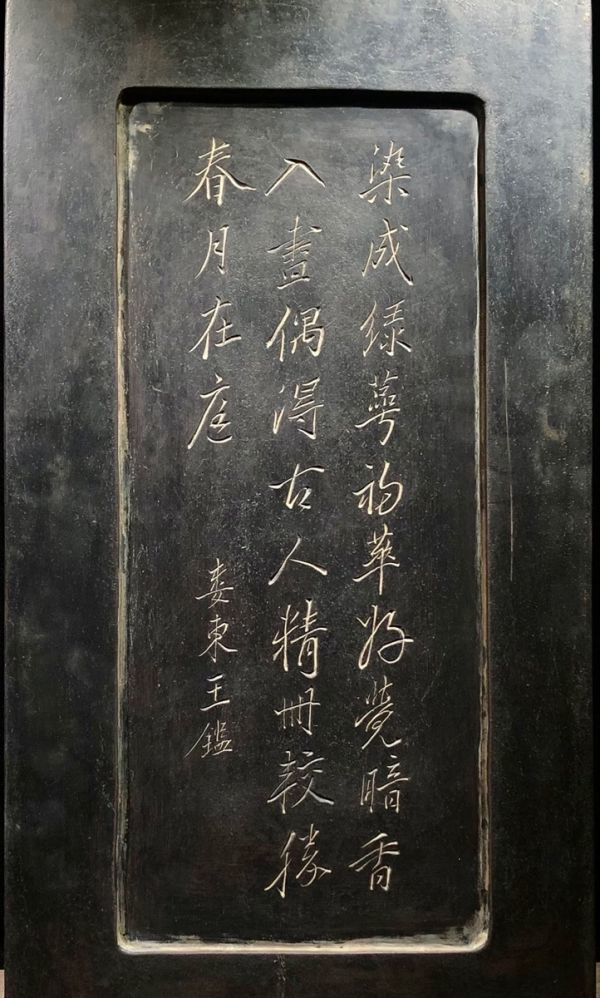 染成緑萼初華好覺暗香
入畫偶得古人精冊較勝
春月在庭
婁東王鑑